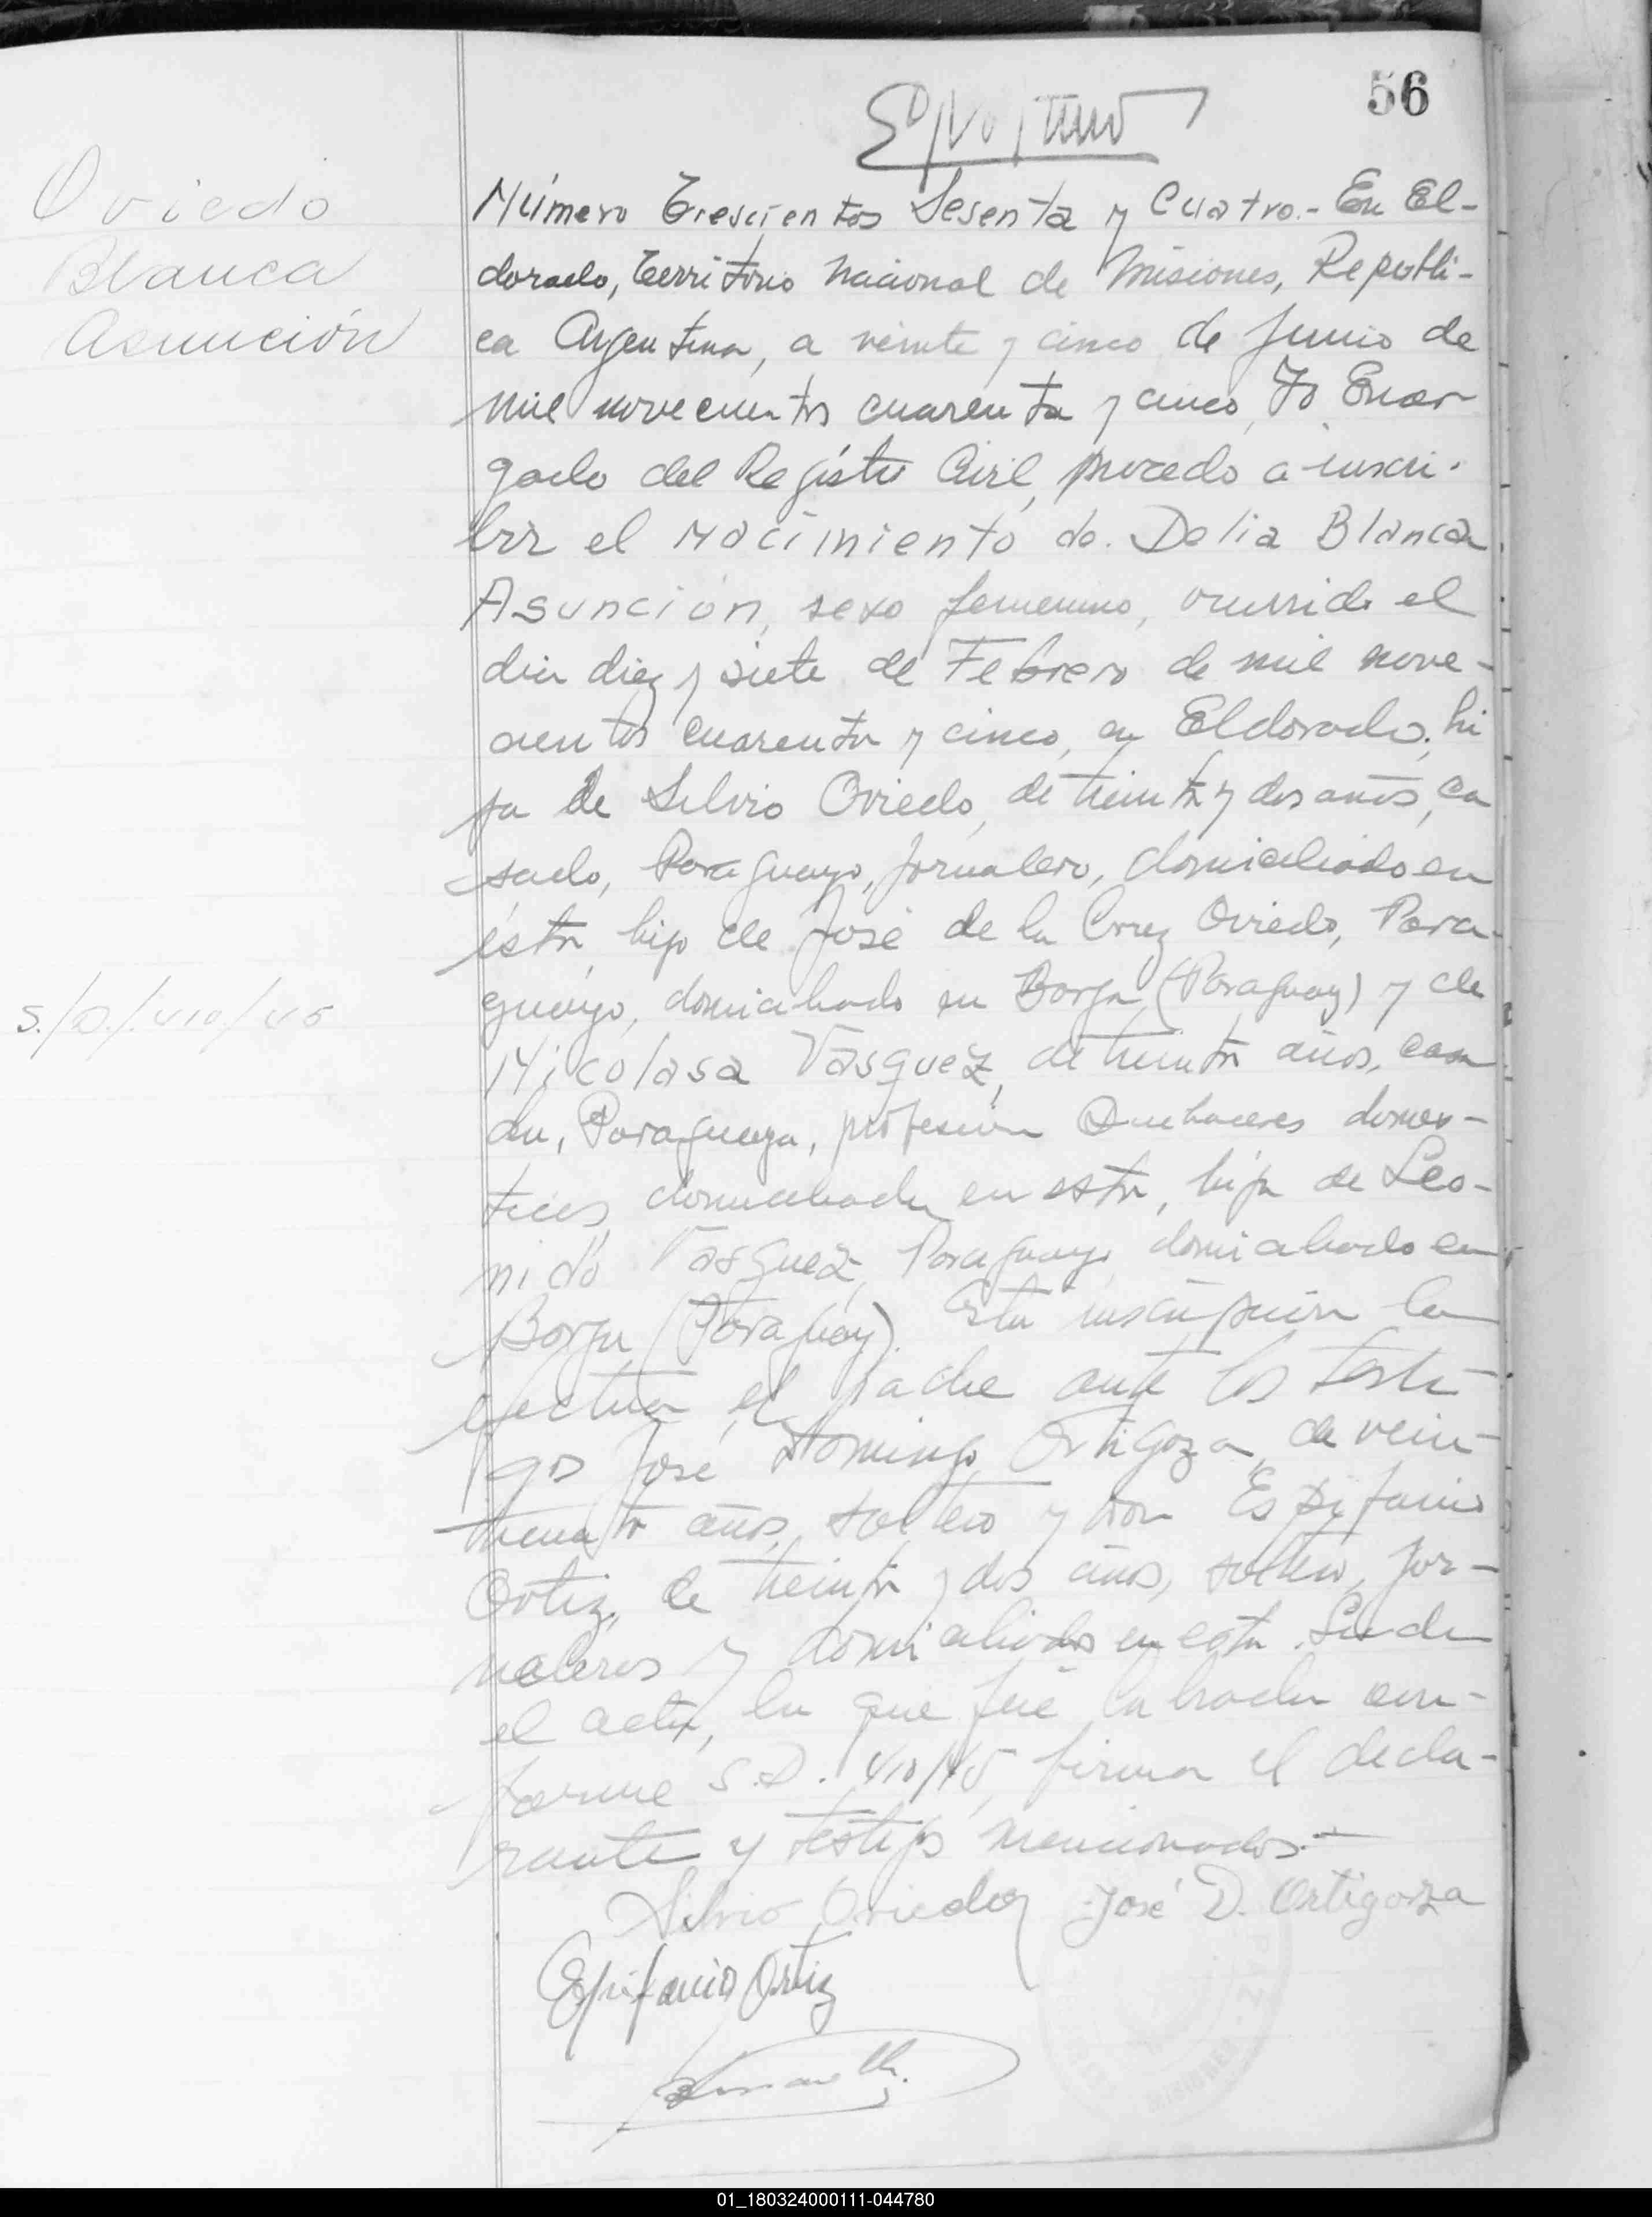 56
Oviedo
Blanca
Asunción
S./D./410/45
Número Trescientos Sesenta y Cuatro.- En El-
dorado, Territorio Nacional de Misiones, Repúbli-
ca Argentina, a veinte y cinco de Junio de
mil novecientos cuarenta y cinco, Yo Encar
gado del Registro Civil, procedo a inscri-
bir el nacimiento de Delia Blanca
Asunción, sexo femenino, ocurrido el
dia diez y siete de Febrero de mil nove-
cientos cuarenta y cinco, en Eldorado, hi
ja de Silvio Oviedo, de treinta y dos años, ca
sado, Paraguayo, jornalero, domiciliado en
ésta, hijo de José de la Cruz Oviedo, Para-
guayo, domiciliado en Borja (Paraguay) y de
Nicolasa Vásquez, de treinta años, casa
da, Paraguaya, profesión Quehaceres domes-
ticos, domiciliada en esta, hija de Leo-
nido Vásquez, Paraguayo domiciliado en
Borja (Paraguay). Esta inscripción la
efectua el padre ante los testi-
gos José Domingo Ortigoza, de vein-
años, soltero y don Espifanio
Ortiz, de treinta y dos años, soltero, jor-
naleros y domiciliados en esta. Leida
el acta, la que fué labrada con-
forme S.D. 410/45, firman el decla-
rante y testigos mencionados.-
Silvio Oviedo José D. Ortigoza
Epifanio Ortiz
MISIONES
01_180324000111-044780